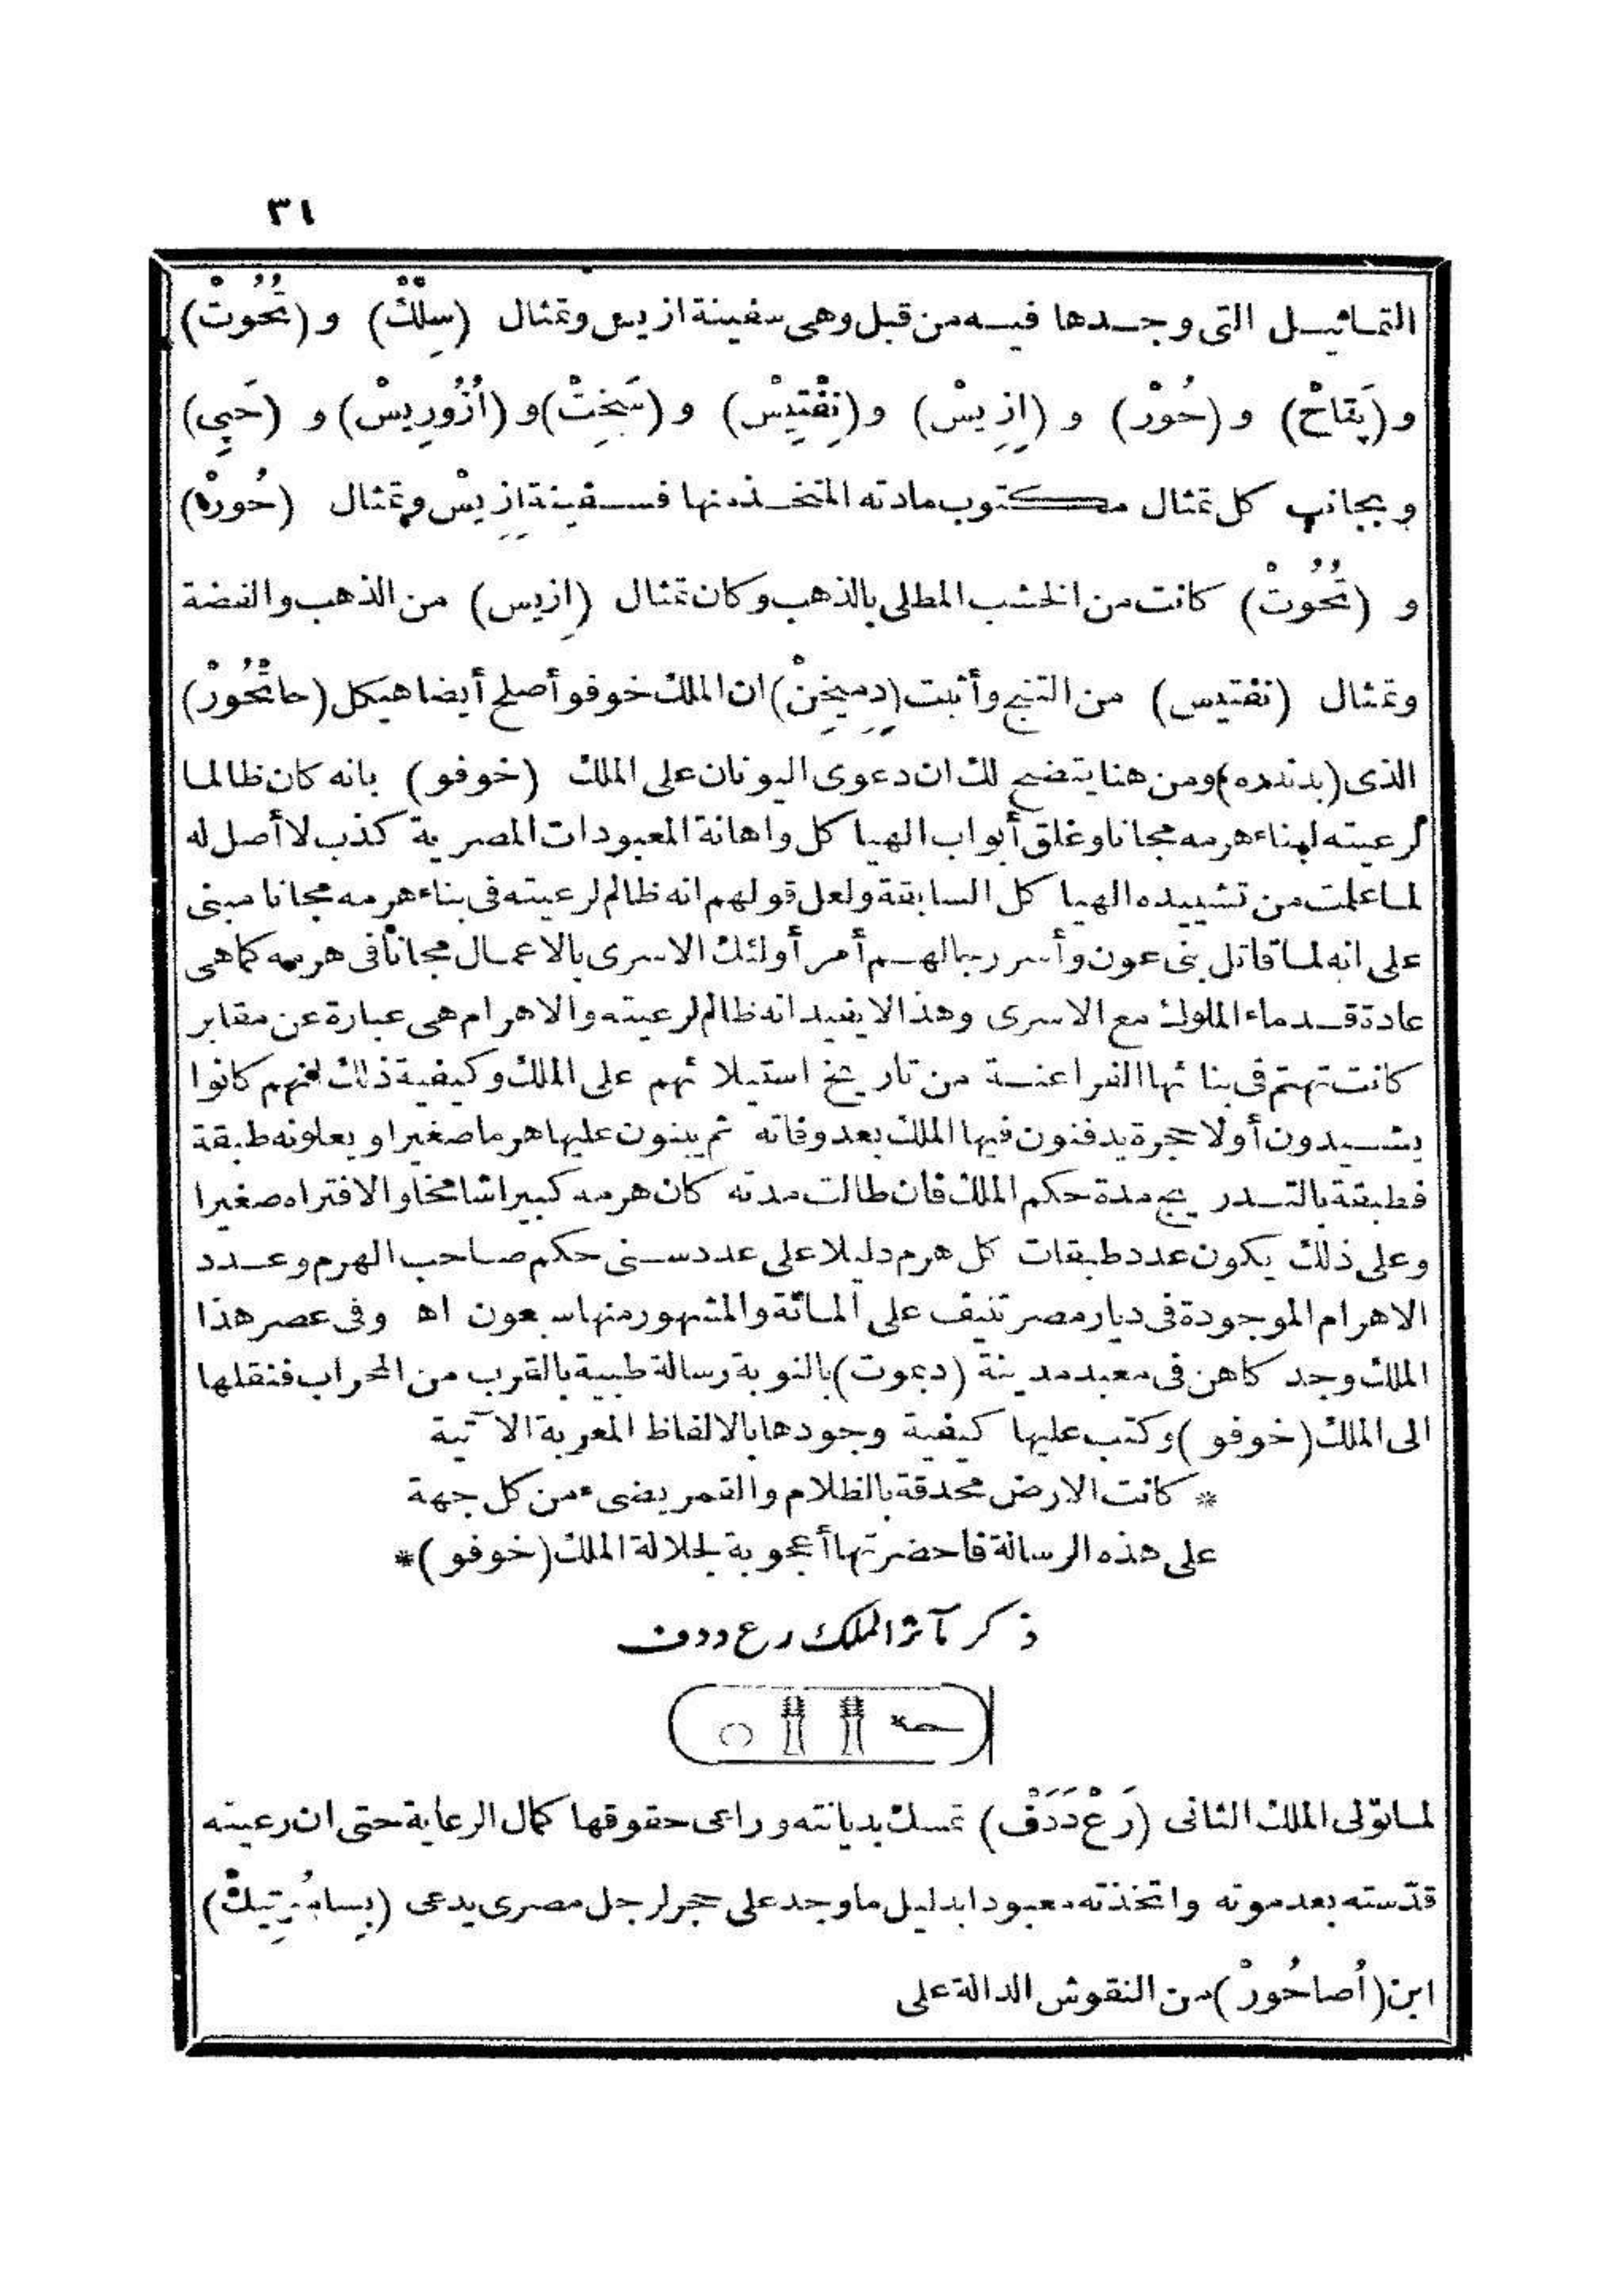 ٣١
التماثيل التى وجدها فيه من قبل وهى سفينة ازيس وتمثال (سِلْكْ) و (تُحُوتْ)
و (پَتَاحْ) و (حُورْ) و (اِزِيسْ) و (نِفْتِيسْ) و (سَخِتْ) و (اُزُورِيسْ) و (حَپِى)
وبجانب كل تمثال مكتوب مادته المتخذ منها فسفينة اِزِيسْ وتمثال (حُورْ)
و (تُحُوتْ) كانت من الخشب المطلى بالذهب وكان تمثال (اِزيس) من الذهب والفضة
وتمثال (نفتيس) من التنج وأثبت (دِمِيخِنْ) ان الملك خوفو أصلح أيضا هيكل (حاتْحُورْ)
الذى (بدندره) ومن هنا يتضح لك ان دعوى اليونان على الملك (خوفو) بانه كان ظالما
لرعيته لبناء هرمه مجانا وغلق أبواب الهياكل واهانة المعبودات المصرية كذب لا أصل له
لما علمت من تشييده الهياكل السابقة ولعل قولهم انه ظالم لرعيته فى بناء هرمه مجانا مبنى
على انه لما قاتل بنى عون وأسر رجالهم أمر أولئك الاسرى بالاعمال مجانا فى هرمه كما هى
عادة قدماء الملوك مع الاسرى وهذا لا يفيد انه ظالم لرعيته والاهرام هى عبارة عن مقابر
كانت تهتم فى بنائها الفراعنة من تاريخ استيلائهم على الملك وكيفية ذلك انهم كانوا
يشيدون أولا حجرة يدفنون فيها الملك بعد وفاته ثم يبنون عليها هرما صغيرا ويعلونه طبقة
فطبقة بالتدريج مدة حكم الملك فان طالت مدته كان هرمه كبيرا شامخا والا فتراه صغيرا
وعلى ذلك يكون عدد طبقات كل هرم دليلا على عدد سنى حكم صاحب الهرم وعدد
الاهرام الموجودة فى ديار مصر تنيف على المائة والمشهور منها سبعون اه وفى عصر هذا
الملك وجد كاهن فى معبد مدينة (دبموت) بالنوبة رسالة طبية بالقرب من المحراب فنقلها
الى الملك (خوفو) وكتب عليها كيفية وجودها بالالفاظ المعربة الآتية
* كانت الارض محدقة بالظلام والقمر يضىء من كل جهة
على هذه الرسالة فاحضرتها أعجوبة لجلالة الملك (خوفو) *
ذكر مآثر الملك رع ددف
لما تولى الملك الثانى (رَعْ دَدَفْ) تمسك بديانته وراعى حقوقها كمال الرعاية حتى ان رعيته
قدّسته بعد موته واتخذته معبودا بدليل ما وجد على حجر لرجل مصرى يدعى
ابن (اُصاحُورْ) من النقوش الدالة على